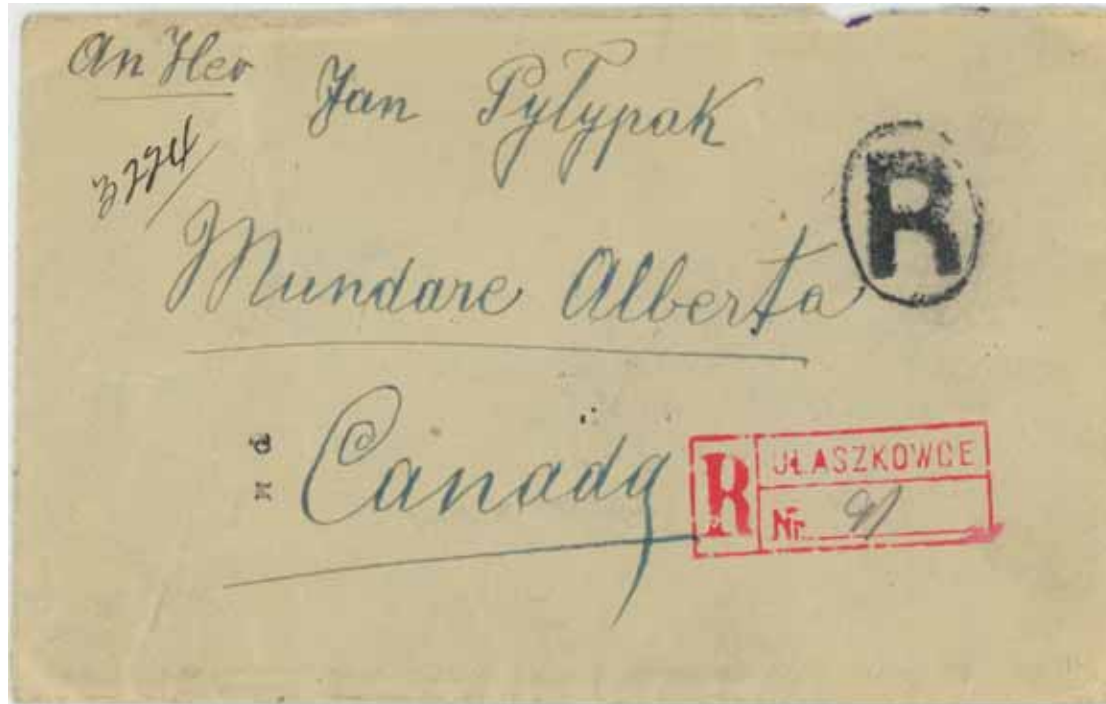 An Her
Jan Pylypak
3224
Mundare Alberta
R
Canada
R UŁASZKOWCE
Nr. 91